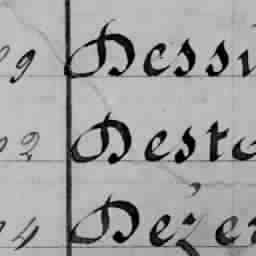 29 Dessi
02 Desto
04 Dézer